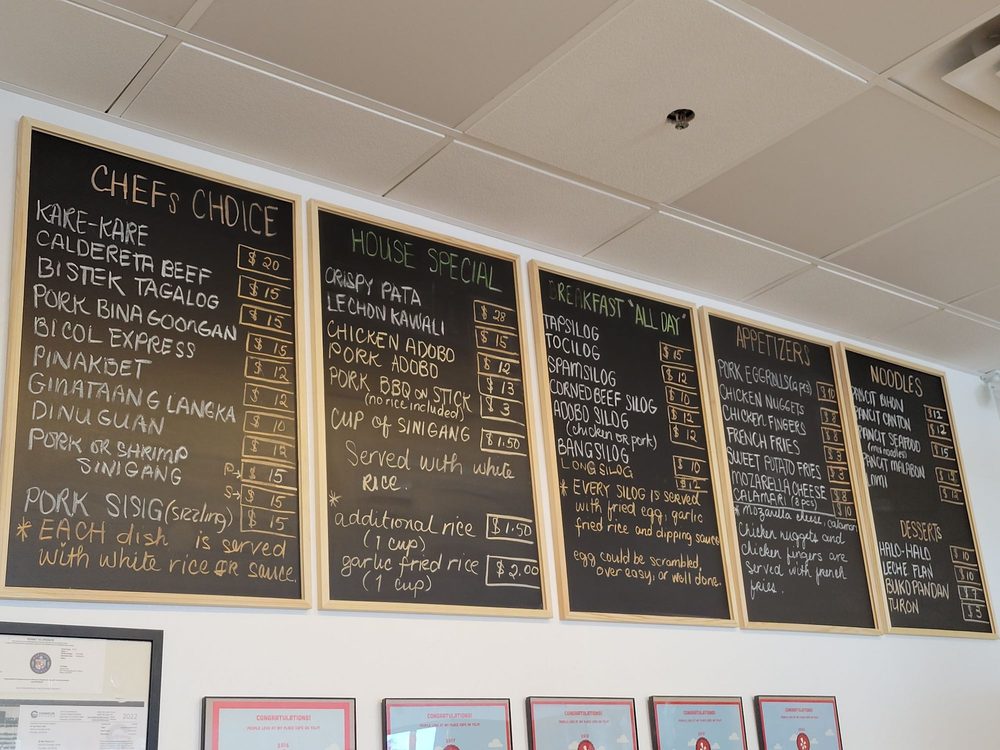 CHEFS CHOICE
KARE-KARE $20
CALDERETA BEEF $15
BISTEK TAGALOG $15
PORK BINAGOONGAN $15
BICOL EXPRESS $12
PINAKBET $12
GINATAANG LANGKA $10
DINUGUAN $12
PORK OR SHRIMP P→ $15
SINIGANG S→ $15
PORK SISIG (sizzling) $15
* EACH dish is served
with white rice OR sauce.
HOUSE SPECIAL
CRISPY PATA $28
LECHON KAWALI $15
CHICKEN ADOBO $12
PORK ADOBO $13
PORK BBQ on STICK $3
(no rice included)
CUP OF SINIGANG $1.50
Served with white
RICE.
*
additional rice $1.50
(1 cup)
garlic fried rice $2.00
(1 cup)
BREAKFAST "ALL DAY"
TAPSILOG $15
TOCILOG $12
SPAMSILOG $10
CORNED BEEF SILOG $12
ADOBO SILOG $12
(chicken or pork)
BANGSILOG $10
LONGSILOG $12
* EVERY SILOG is served
with fried egg, garlic
fried rice and dipping sauce
egg could be scrambled,
over easy, or well done.
APPETIZERS
PORK EGGROLLS
CHICKEN NUGGETS
CHICKEN FINGERS
FRENCH FRIES
SWEET POTATO FRIES
MOZARELLA CHEESE
CALAMARI
* Mozarilla cheese, calamari
Chicken nuggets and
chicken fingers are
served with french
fries.
NOODLES
PANCIT BIHON $12
PANCIT CANTON $12
PANCIT SEAFOOD $15
PANCIT MALABON
DESSERTS
HALO-HALO $10
LECHE FLAN $10
BUKO PANDAN $7
TURON $5
2022
CONGRATULATIONS!
PEOPLE LOVE MY PLACE CAFE ON YELP!
CONGRATULATIONS!
PEOPLE LOVE MY PLACE CAFE ON YELP!
CONGRATULATIONS!
PEOPLE LOVE MY PLACE CAFE ON YELP!
CONGRATULATIONS!
CONGRATULATIONS!